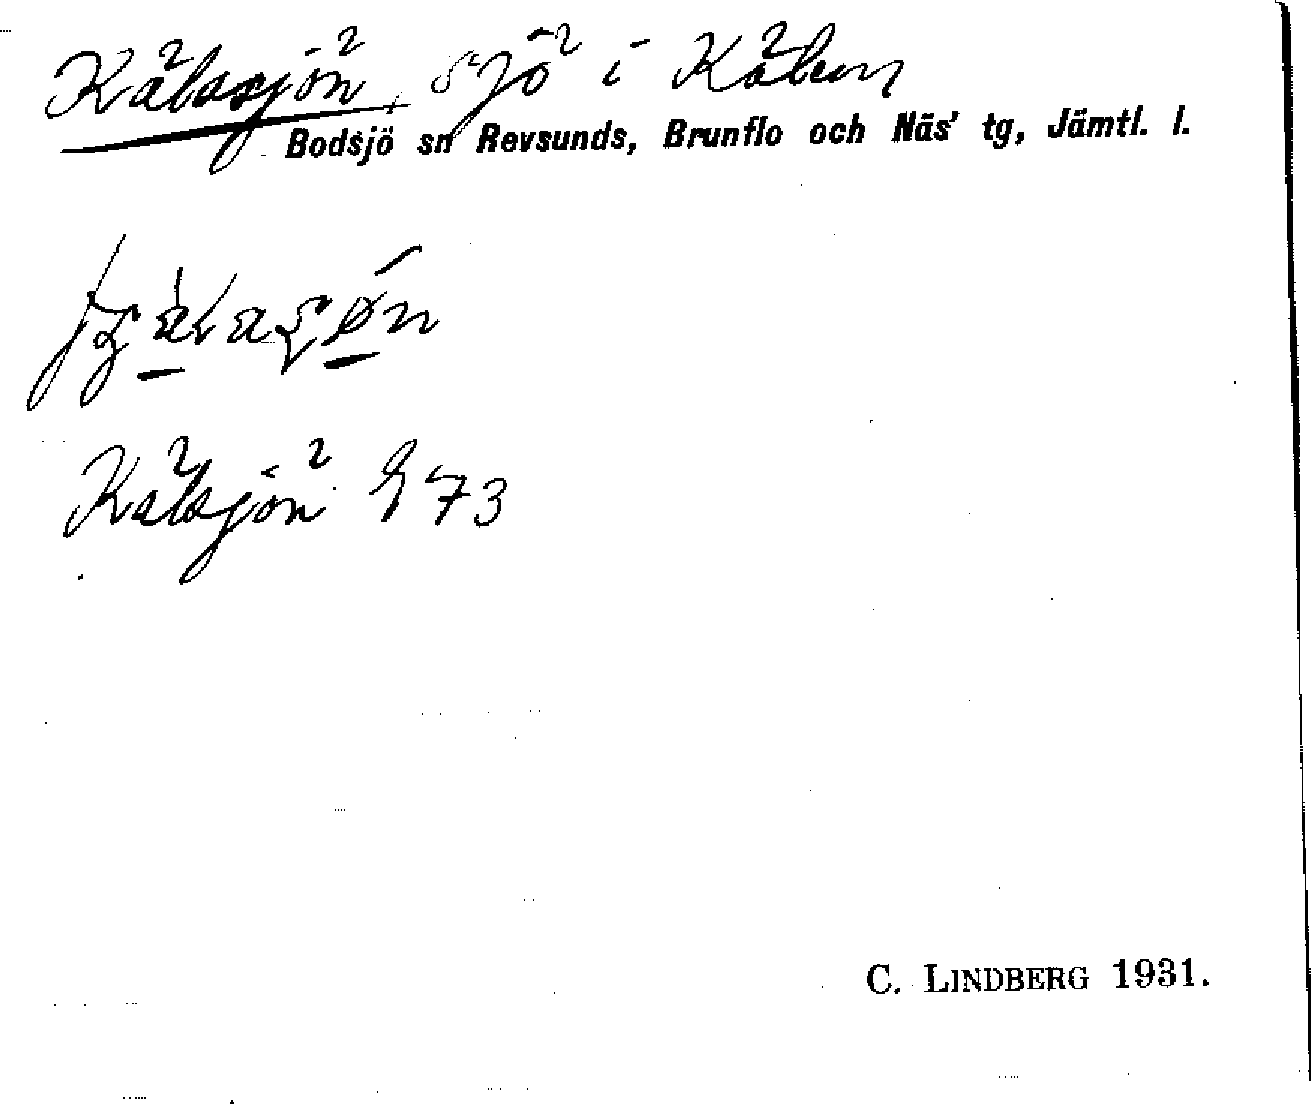 Kålasjön, sjö i Kålen
Bodsjö sn Revsunds, Brunflo och Näs' tg, Jämtl. l.
Kålsjön G 73
C. LINDBERG 1931.